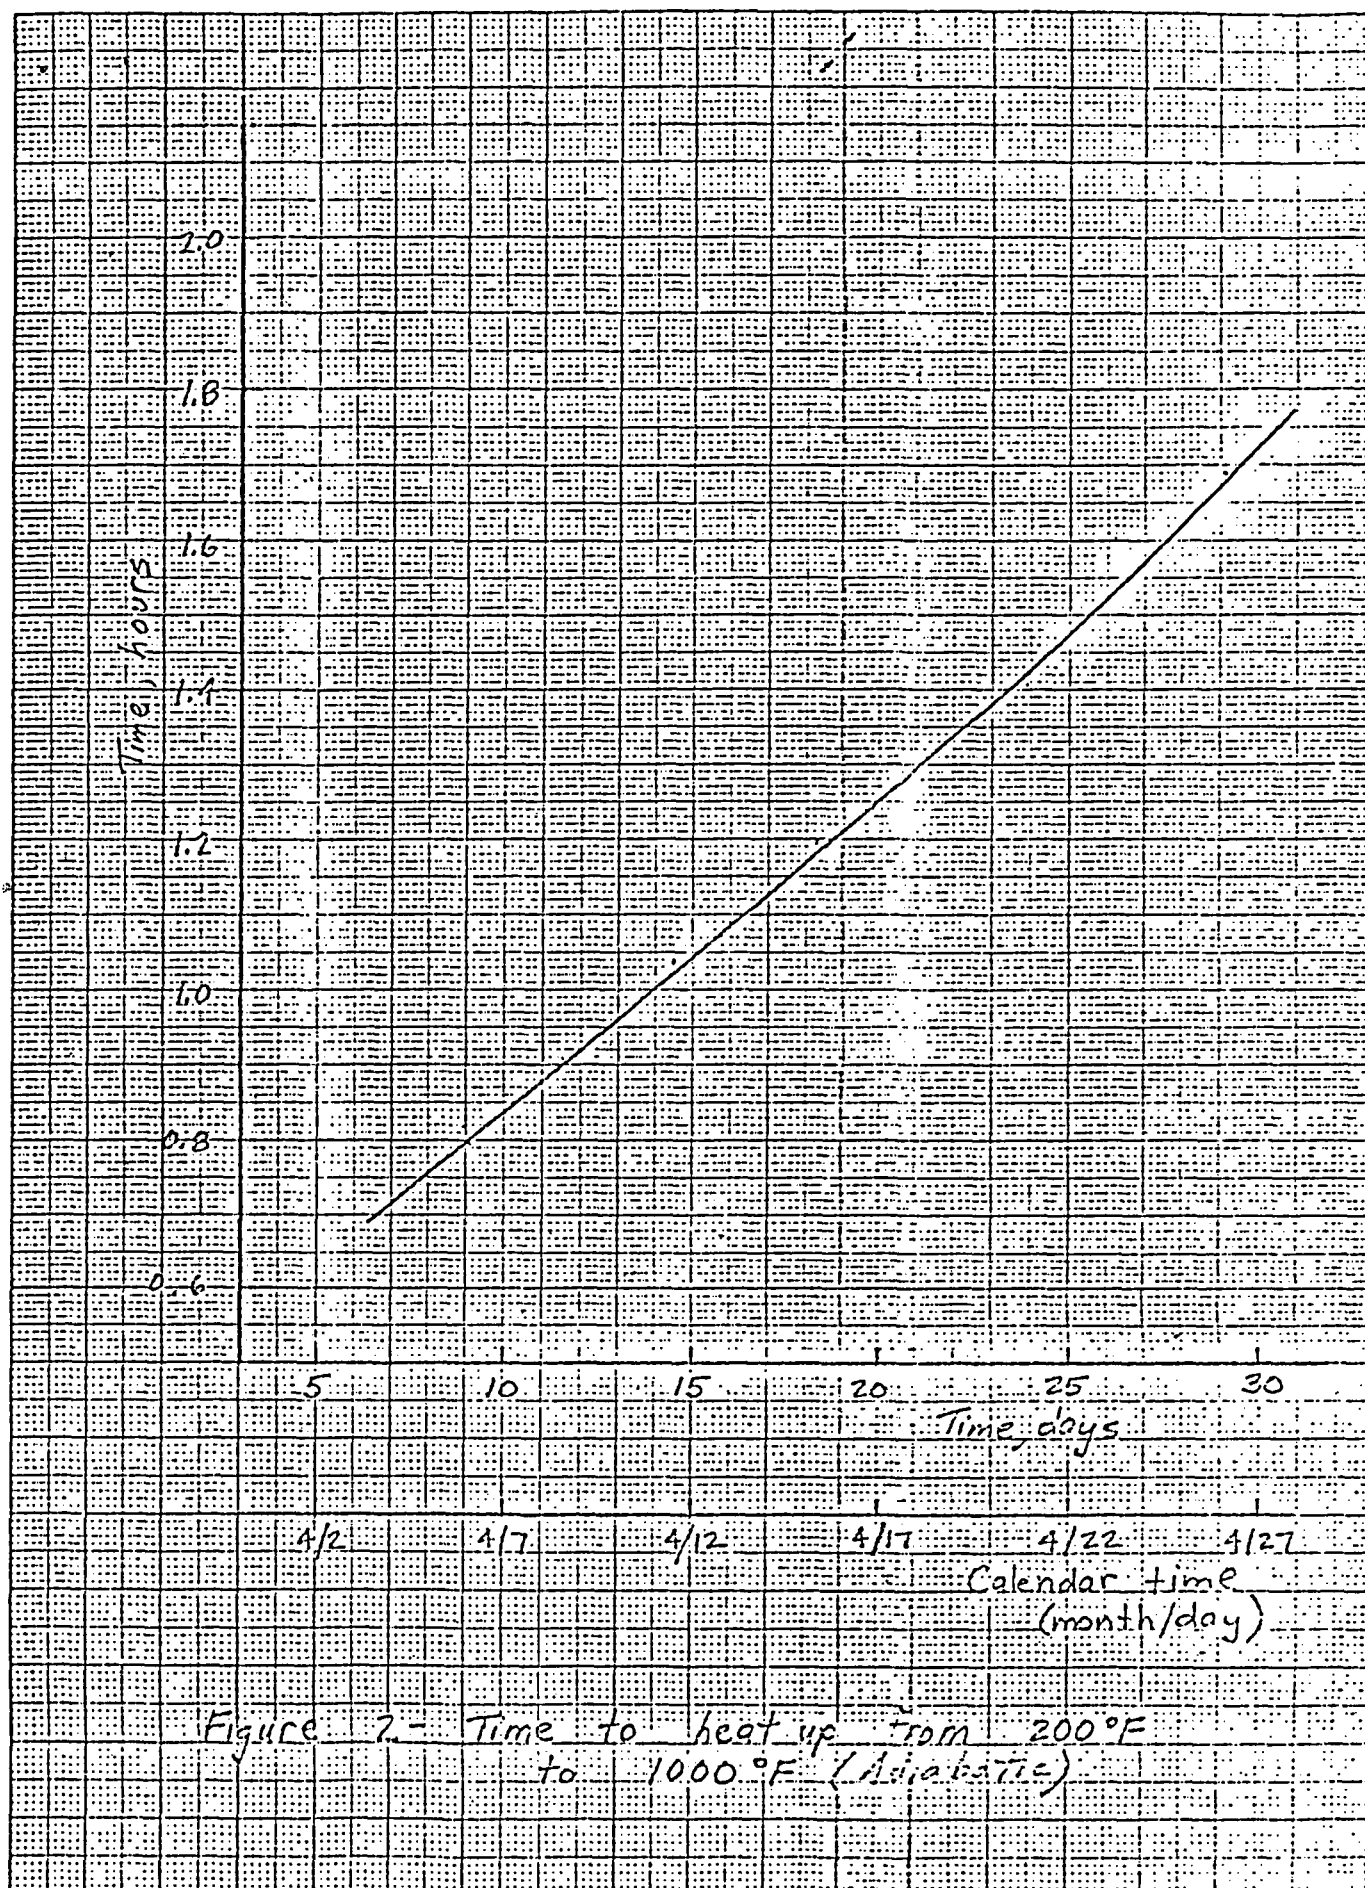 2.0
1.8
1.6
1.4
1.2
1.0
0.8
0.6
Time, hours
5 10 15 20 25 30
Time, days
4/2 4/7 4/12 4/17 4/22 4/27
Calendar time
(month/day)
Figure 2- Time to heat up from 200°F
to 1000°F (Adiabatic)